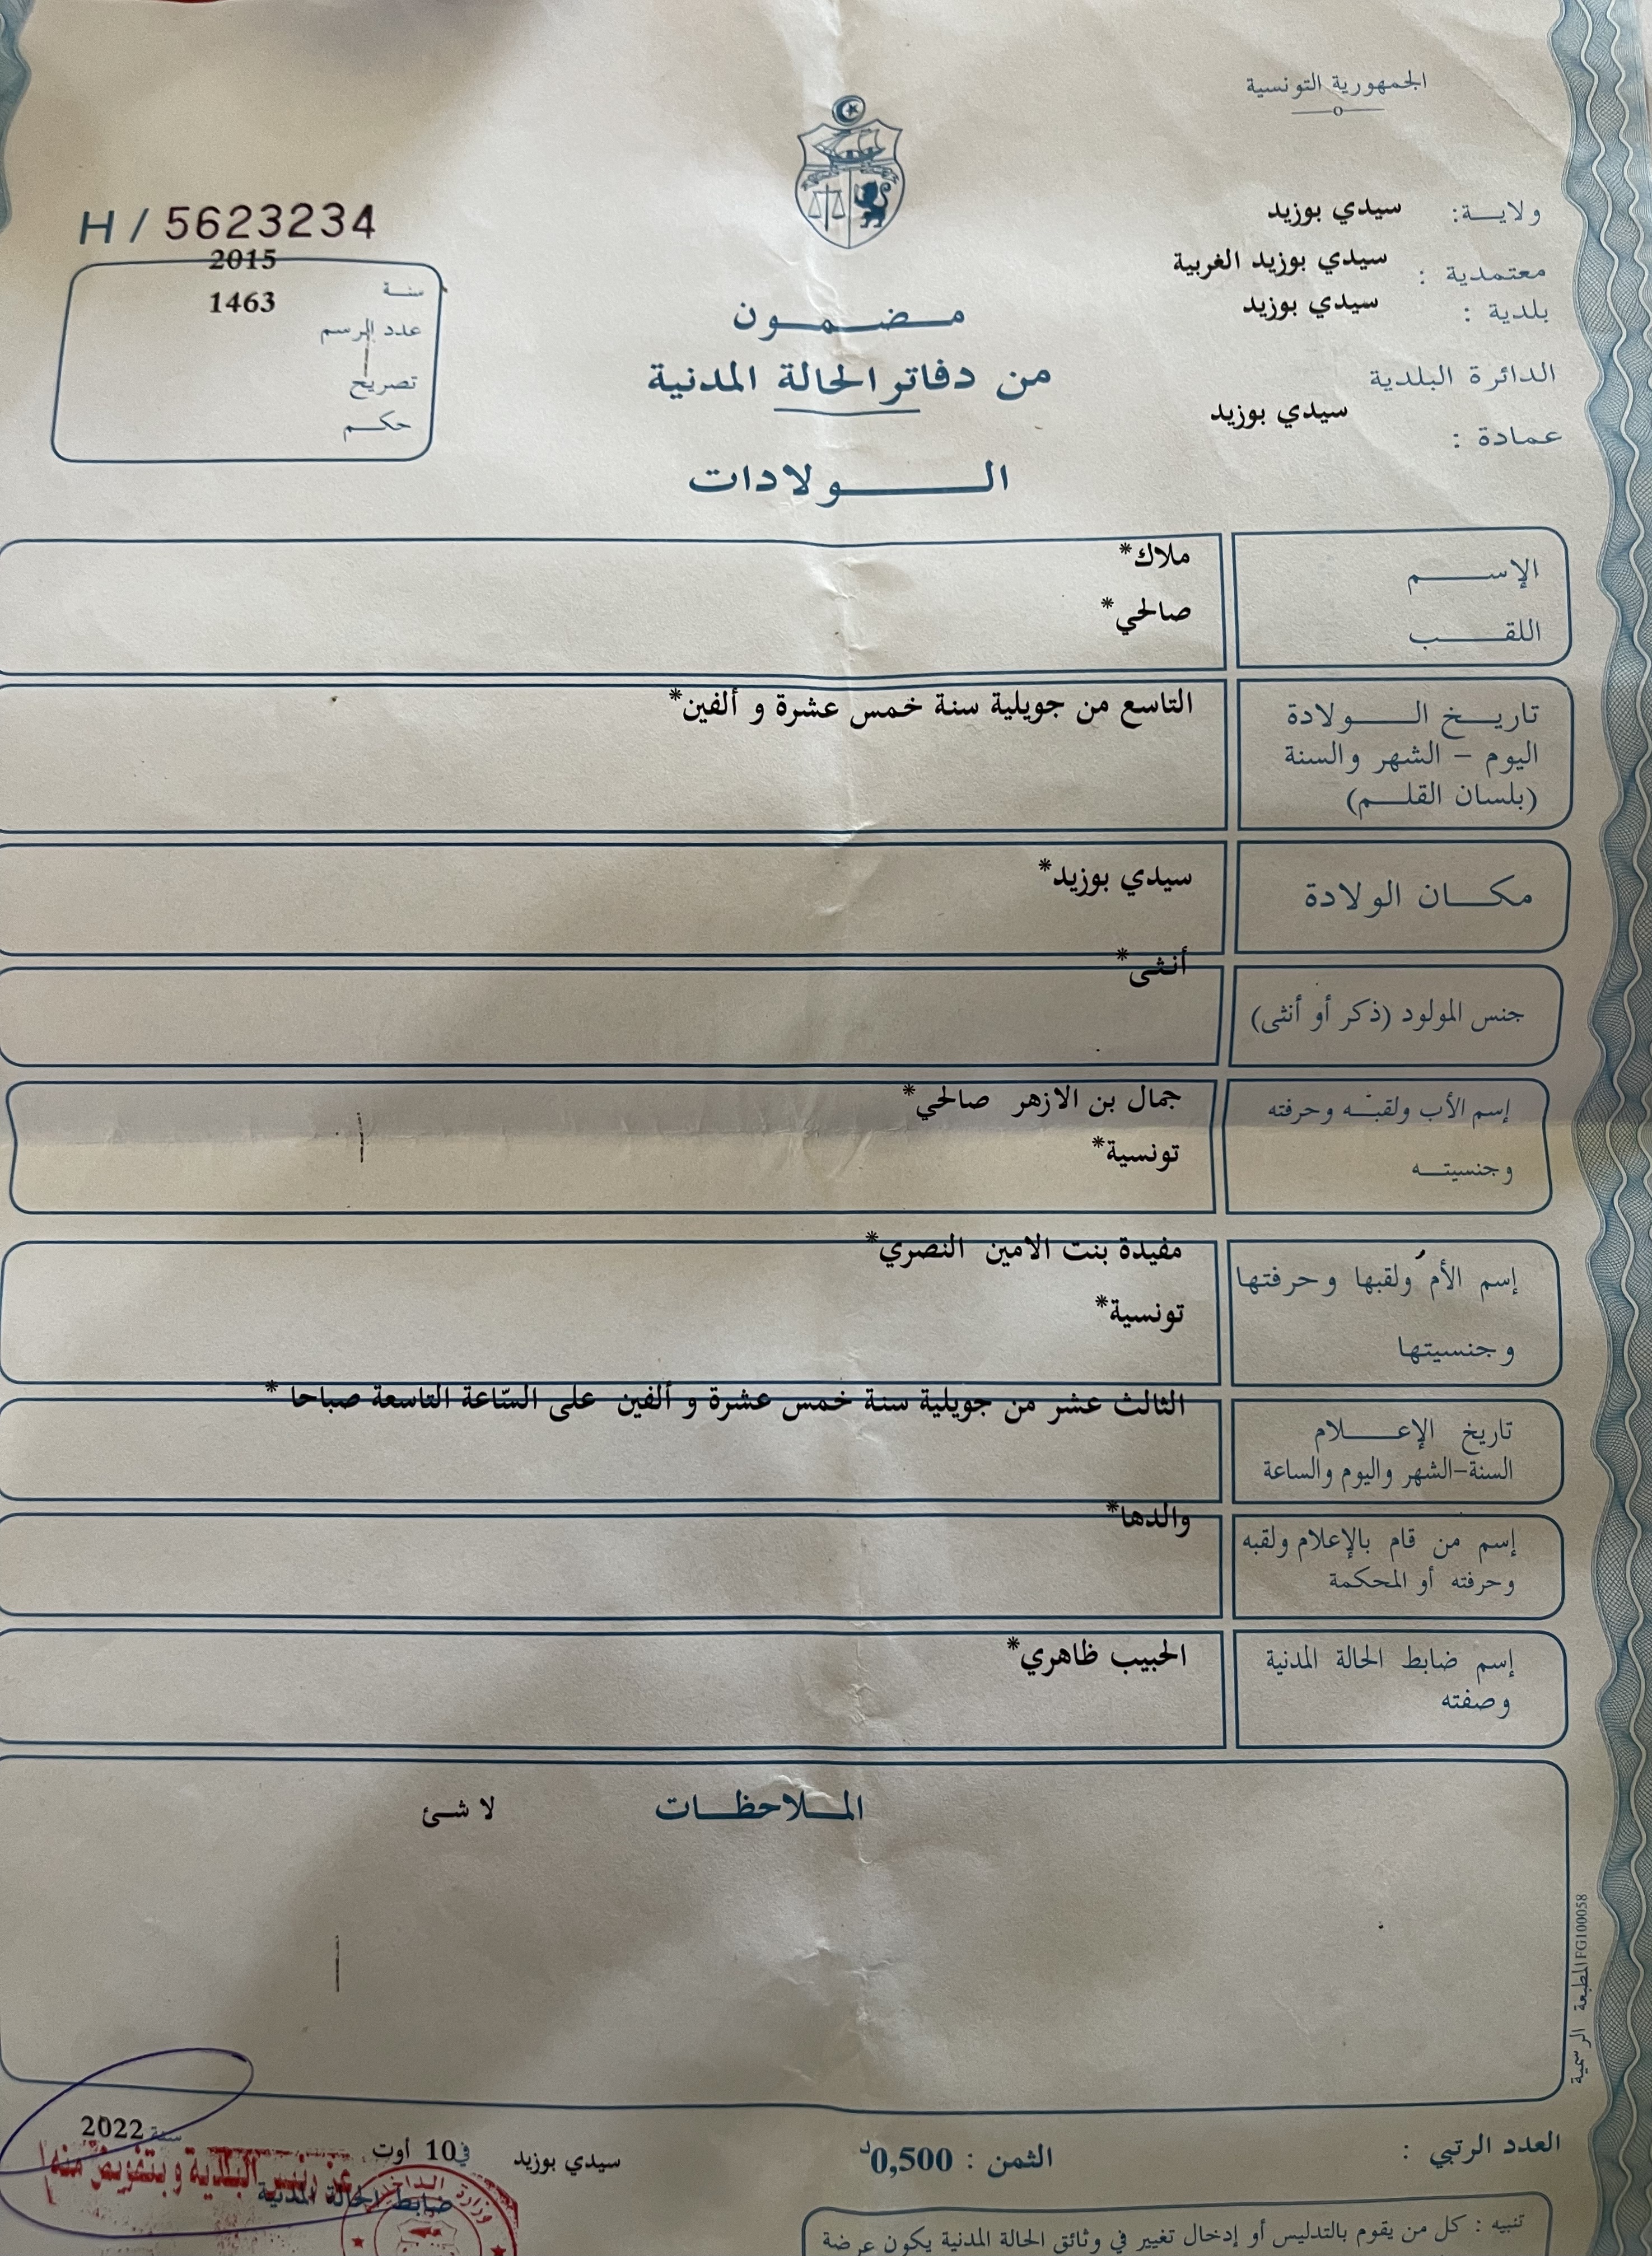 الجمهورية التونسية
ولايـــة: سيدي بوزيد
معتمدية : سيدي بوزيد الغربية
بلدية : سيدي بوزيد
الدائرة البلدية
سيدي بوزيد
عمادة :
H / 5623234
2015
سنـة
1463
عدد الرسم
تصريح
حكـم
مـضـمـون
من دفاتر الحالة المدنية
الـولادات
الإســـم ملاك*
اللقـــب صالحي*
تاريـخ الـــولادة التاسع من جويلية سنة خمس عشرة و ألفين*
اليوم - الشهر والسنة
(بلسان القلـم)
مكـــان الولادة سيدي بوزيد*
أنثى*
جنس المولود (ذكر أو أنثى)
إسم الأب ولقبـه وحرفته جمال بن الازهر صالحي*
وجنسيتـه تونسية*
مفيدة بنت الامين النصري*
إسم الأم ولقبها وحرفتها
تونسية*
وجنسيتها
الثالث عشر من جويلية سنة خمس عشرة و ألفين على السّاعة التاسعة صباحا *
تاريخ الإعـــلام
السنة-الشهر واليوم والساعة
والدها*
إسم من قام بالإعلام ولقبه
وحرفته أو المحكمة
إسم ضابط الحالة المدنية الحبيب ظاهري*
وصفته
المـلاحظـات لا شئ
المطبعة الرسمية FG100058
العدد الرتبي :
الثمن : 0,500د
سيدي بوزيد في 10 أوت سنة 2022
عن رئيس البلدية وبتفويض منه
ضابط الحالة المدنية
وزارة الداخلية
تنبيه : كل من يقوم بالتدليس أو إدخال تغيير في وثائق الحالة المدنية يكون عرضة